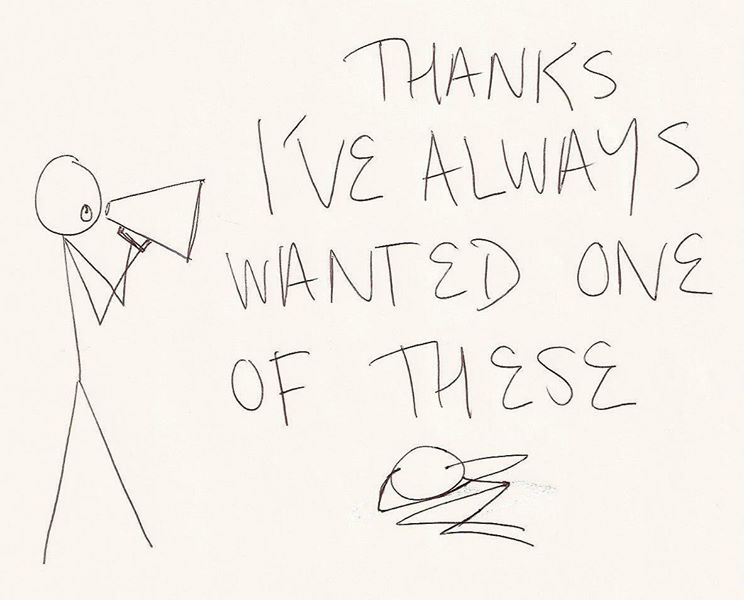 THANKS
I'VE ALWAYS
WANTED ONE
OF THESE